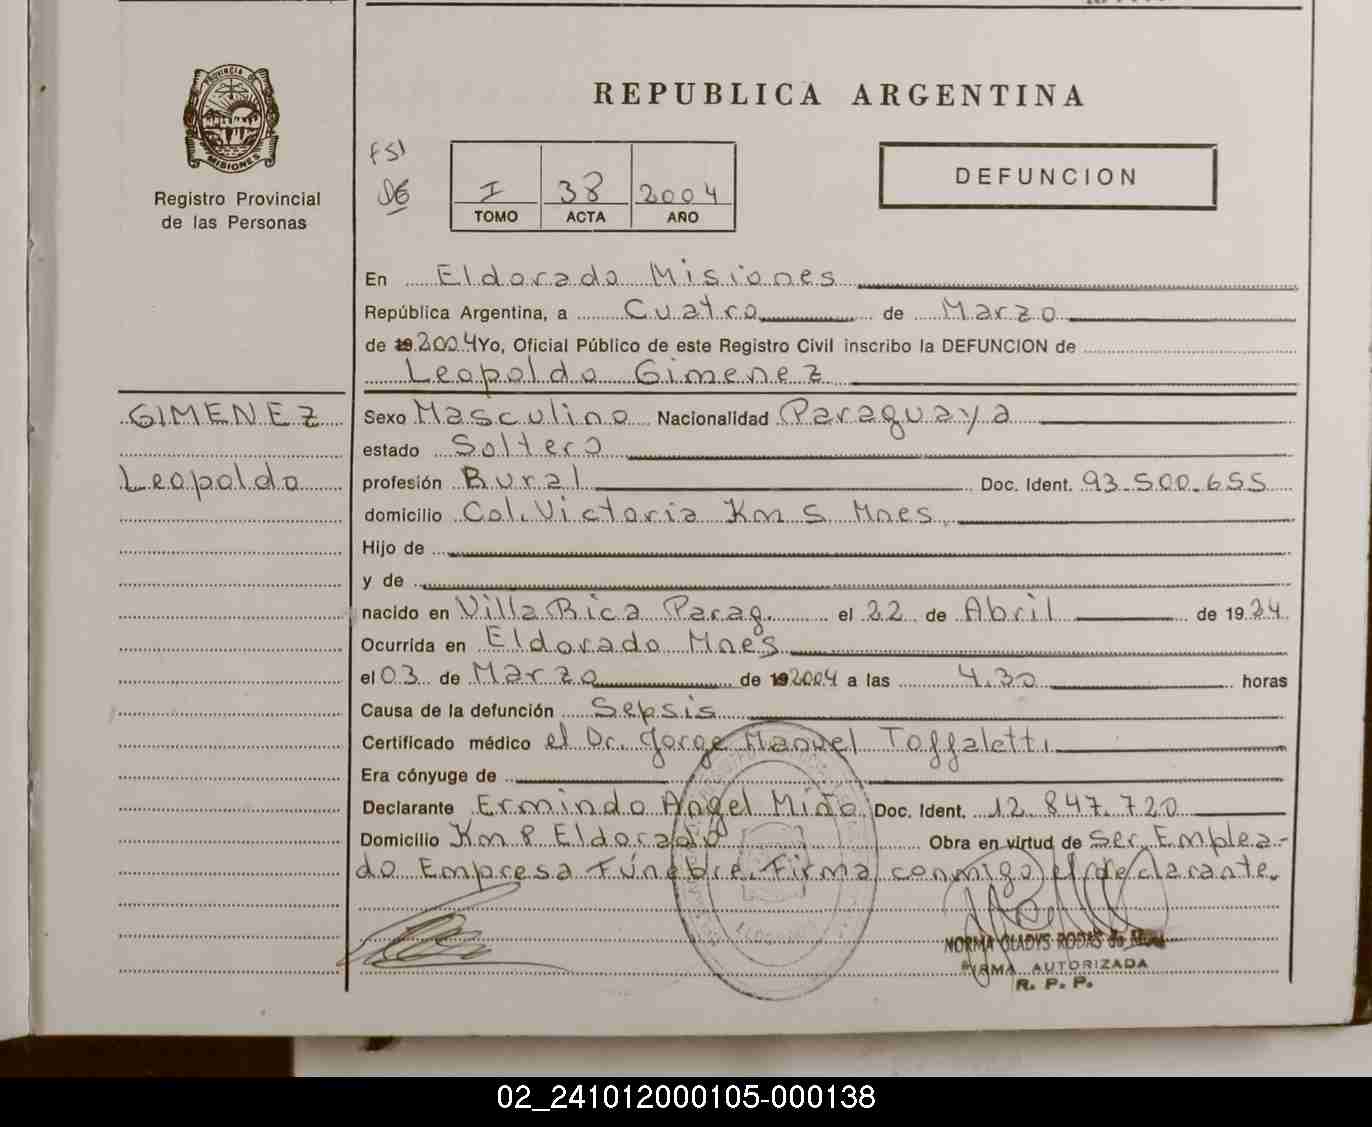 REPUBLICA ARGENTINA
PROVINCIA DE
MISIONES
Registro Provincial
de las Personas
FSI
I 38 2004
TOMO ACTA AÑO
DEFUNCION
En Eldorado Misiones
República Argentina, a Cuatro de Marzo
de 19 2004 Yo, Oficial Público de este Registro Civil inscribo la DEFUNCION de
Leopoldo Gimenez
GIMENEZ
Leopoldo
Sexo Masculino Nacionalidad Paraguaya
estado Soltero
profesión Rural Doc. Ident. 93.500.655
domicilio Col. Victoria Km 5 Mnes.
Hijo de
y de
nacido en Villa Rica Parag. el 22 de Abril de 1924
Ocurrida en Eldorado Mnes
el 03 de Marzo de 19 2004 a las 4.30 horas
Causa de la defunción Sepsis
Certificado médico el Dr. Jorge Manuel Toffaletti
Era cónyuge de
Declarante Ermindo Angel Miño Doc. Ident. 12.847.720
Domicilio Km 8 Eldorado Obra en virtud de Ser Emplea-
do Empresa Fúnebre. Firma conmigo el declarante.
NORMA GLADYS RODAS de
FIRMA AUTORIZADA
R. P. P.
02_241012000105-000138